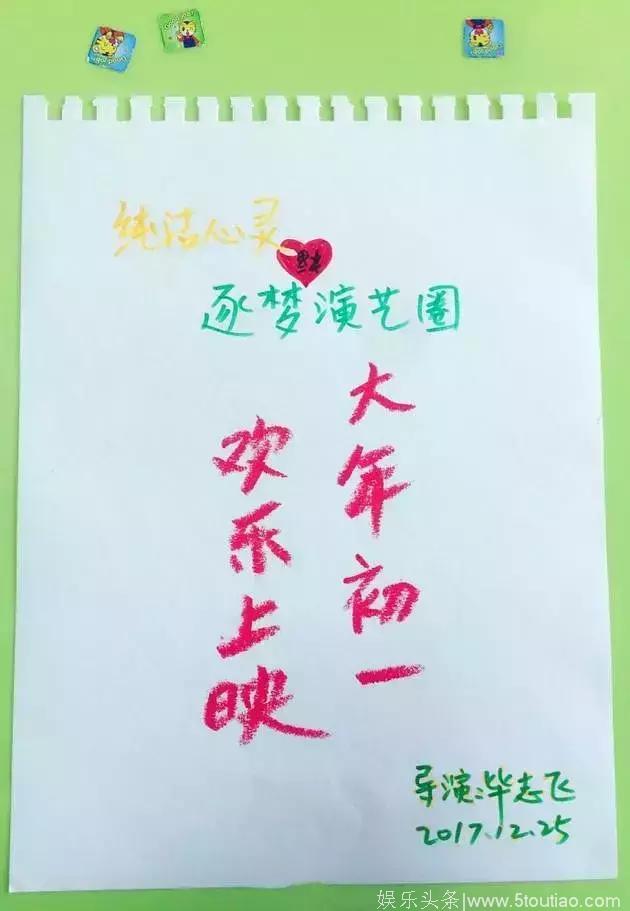 纯洁心灵
逐梦演艺圈
大年初一
欢乐上映
导演:毕志飞
2017.12.25
娱乐头条|www.5toutiao.com